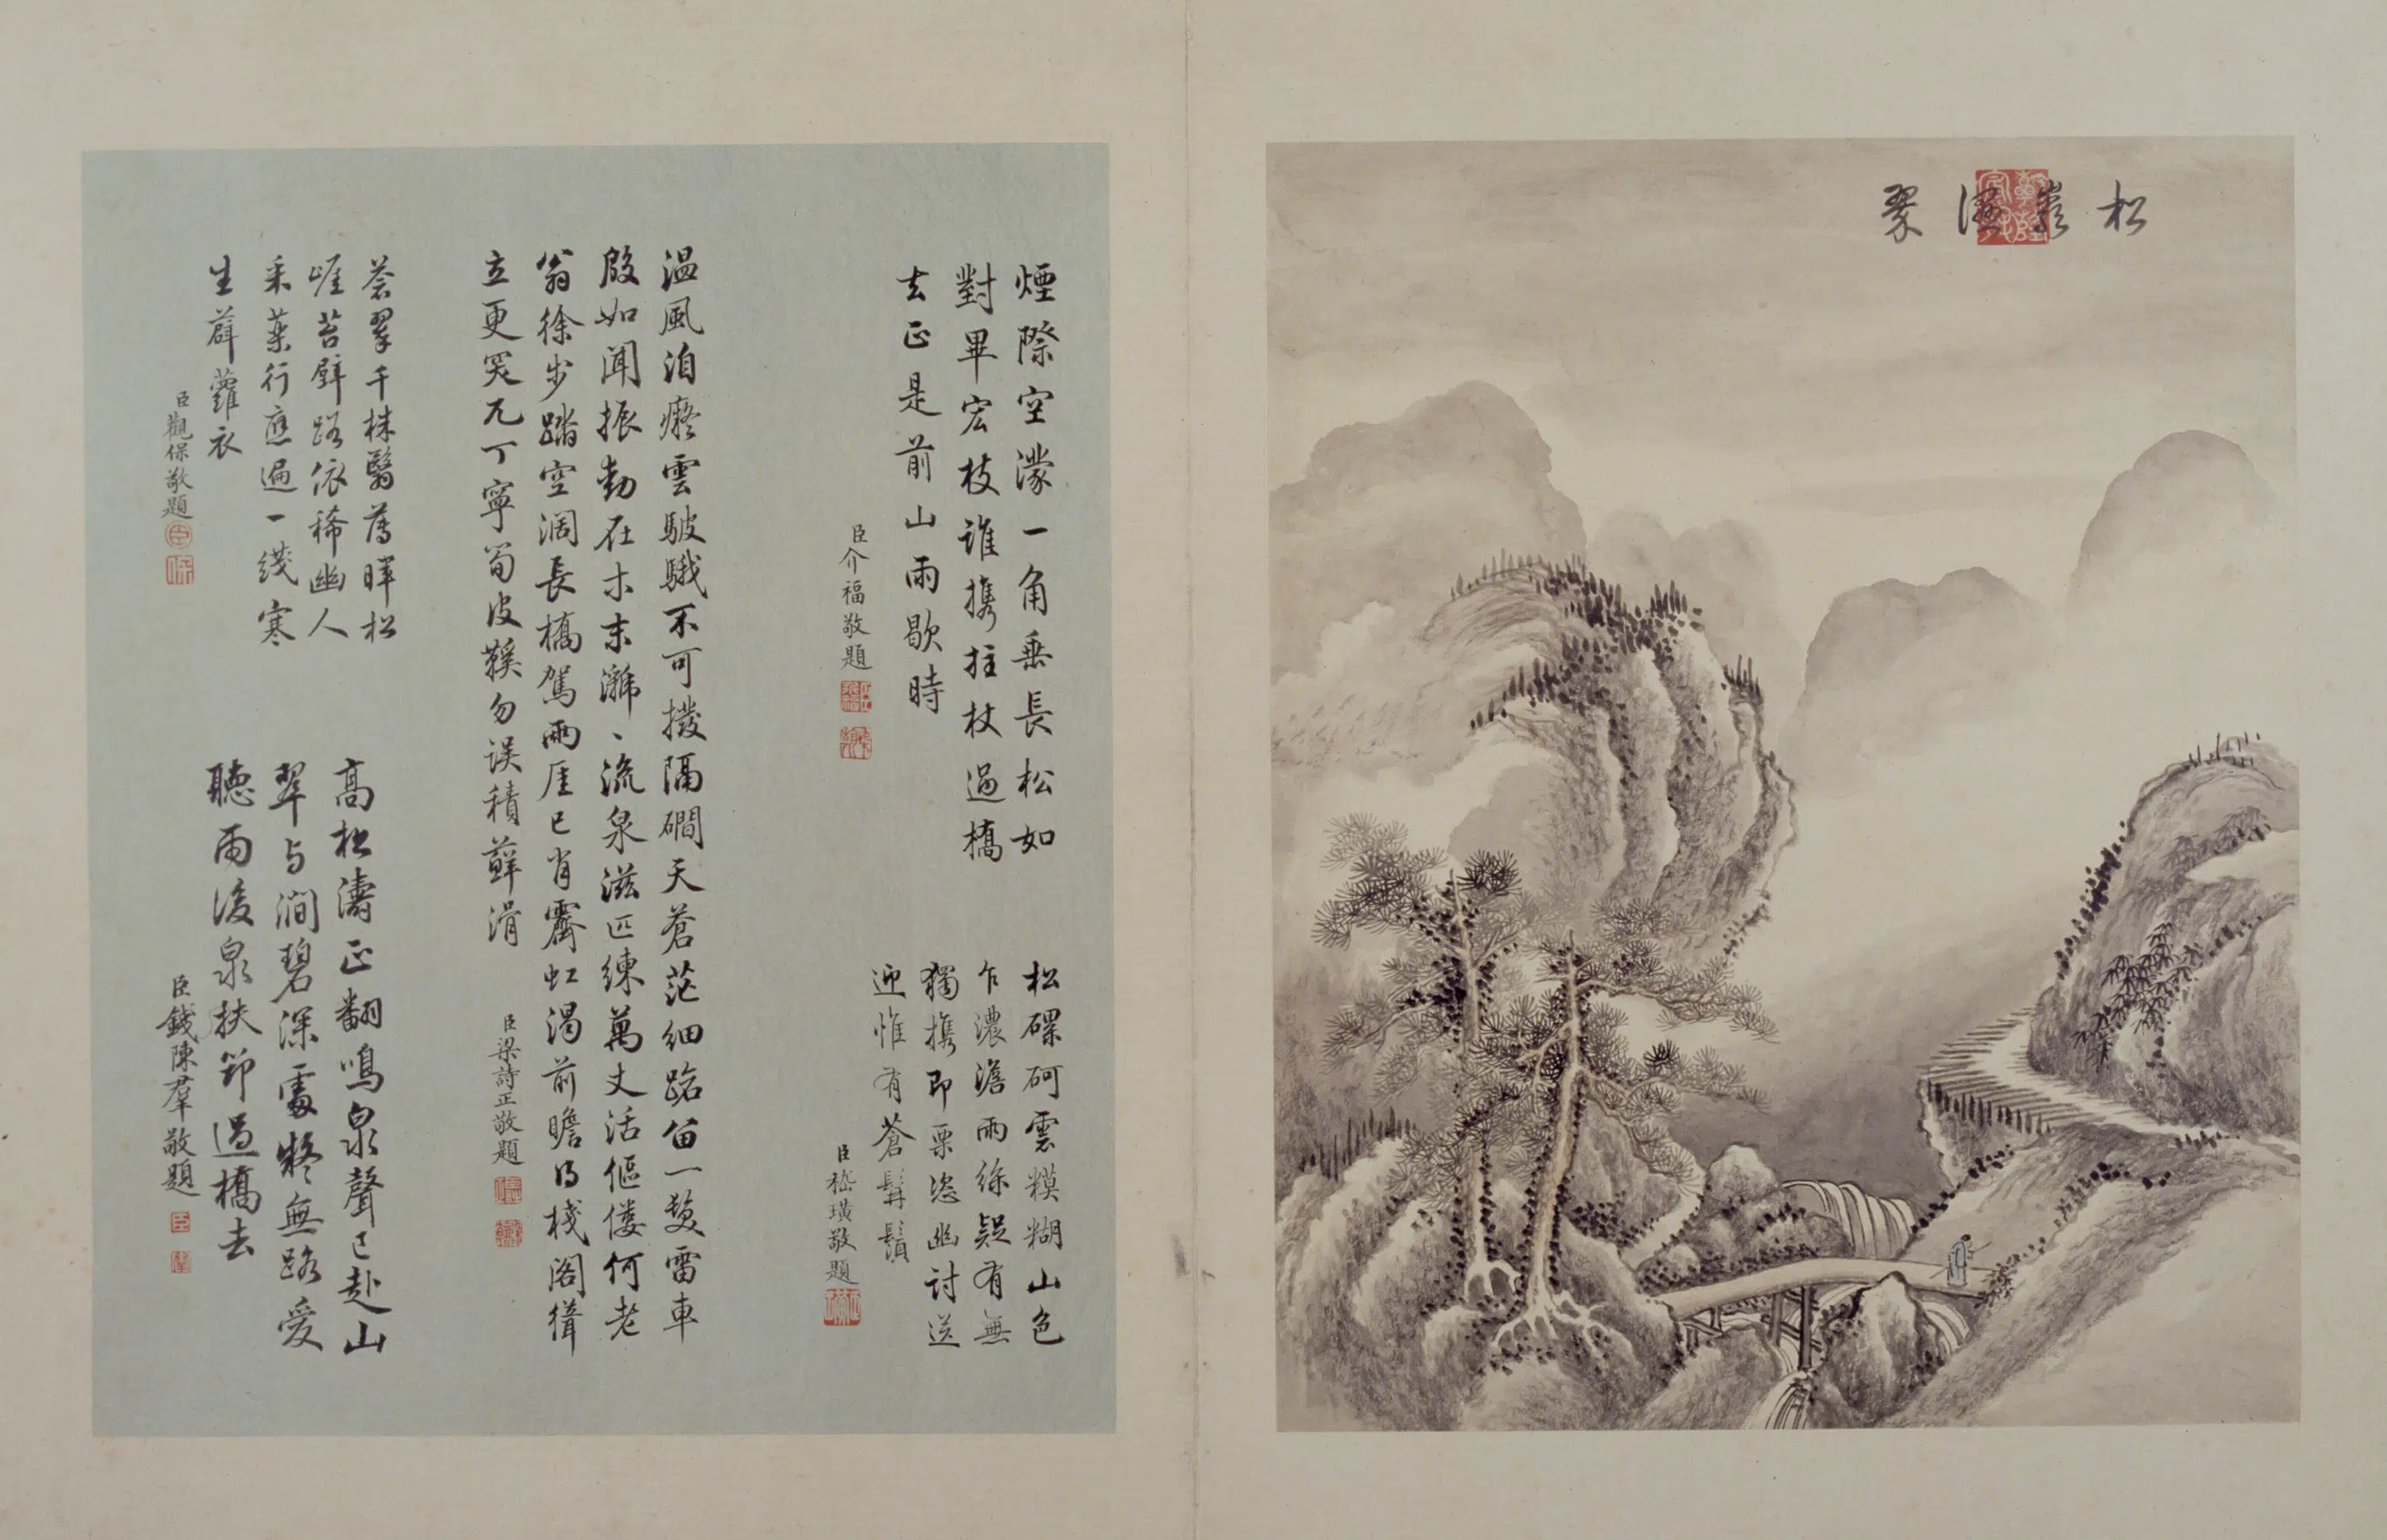 松巖溼翠
煙際空濛一角垂長松如
對畢宏枝誰攜拄杖過橋
去正是前山雨歇時
臣介福敬題
松磥砢雲糢糊山色
乍濃澹雨絲疑有無
獨攜即栗恣幽討送
迎惟有蒼髯鬚
臣嵇璜敬題
温風洎癡雲駊騀不可撥隔磵天蒼茫細路留一髮雷車
殷如聞振動在木末㶁〻流泉滋匹練萬丈活傴僂何老
翁徐步踏空濶長橋駕兩厓已肖霽虹渴前瞻得棧閣緣
立更突兀丁寧筍皮鞵勿误積蘚滑
臣梁詩正敬題
蒼翠千株翳落暉松
崕苔壁路依稀幽人
采藥行應遍一綫寒
生薜蘿衣
臣觀保敬題
高松濤正翻鳴泉聲已赴山
翠与澗碧深處凝無路愛
聽雨後泉扶筇過橋去
臣錢陳羣敬題